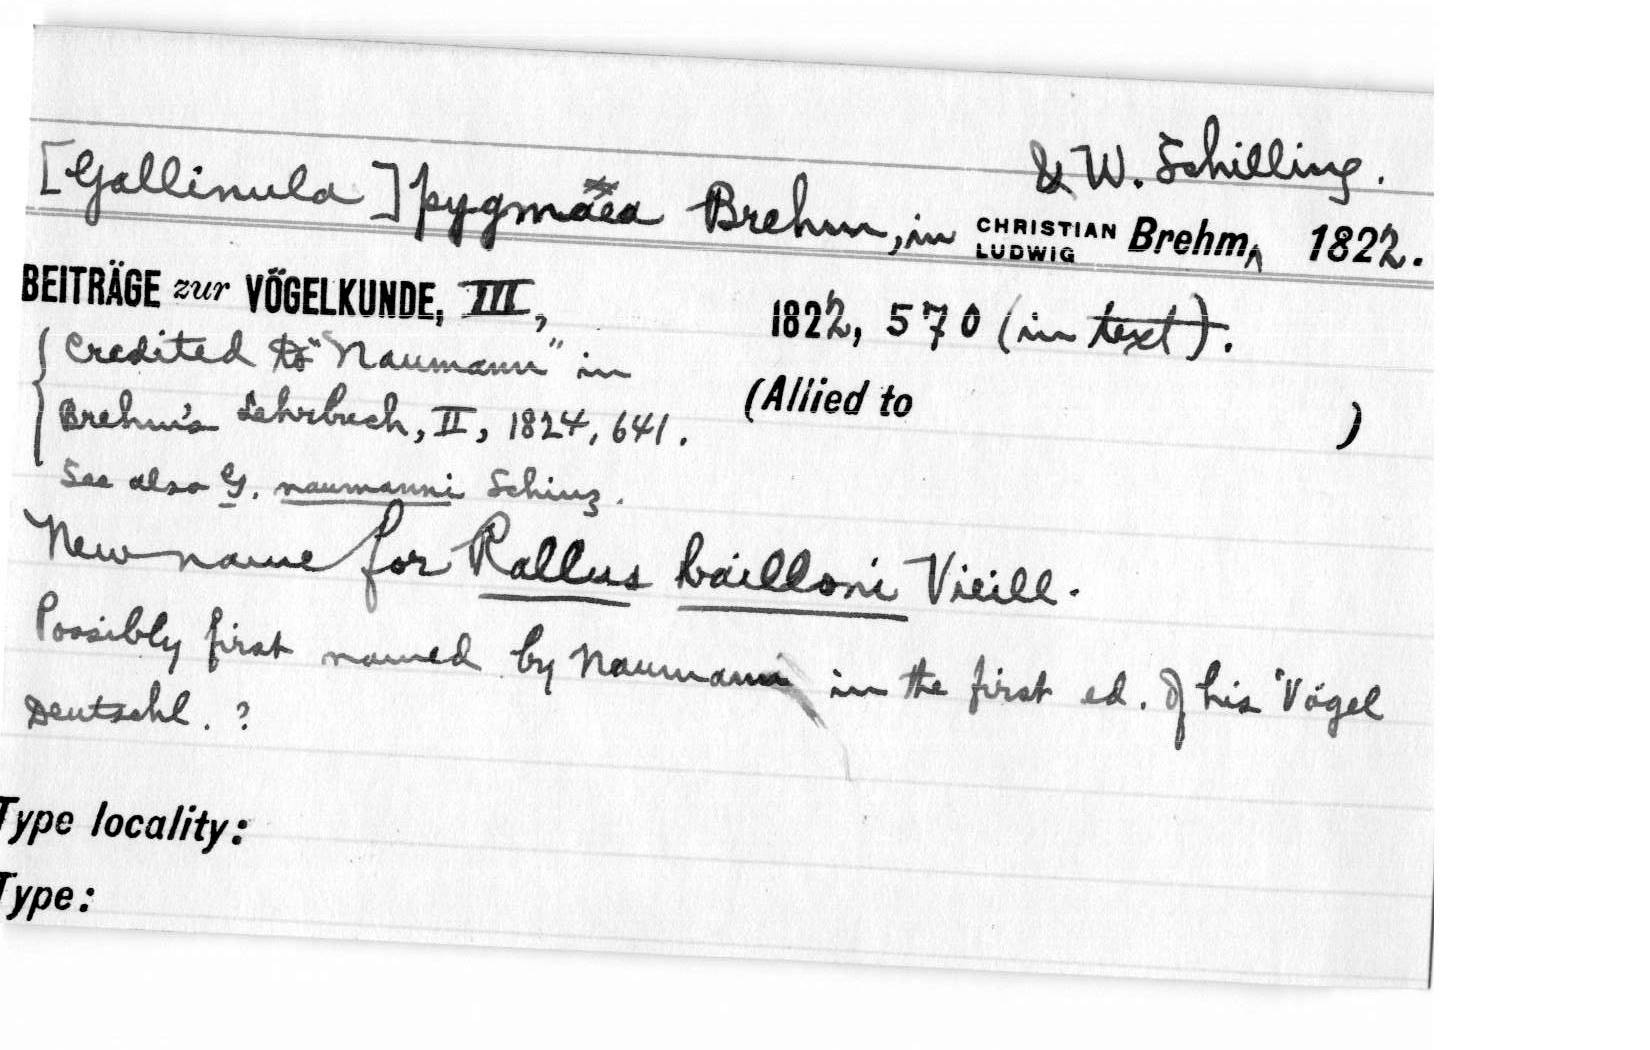 & W. Schilling.
[Gallinula] pygmaea Brehm, in CHRISTIAN LUDWIG Brehm, 1822.
BEITRÄGE zur VÖGELKUNDE, III, 1822, 570 (in text).
Credited to "Naumann" in
Brehm's Lehrbuch, II, 1824, 641.
(Allied to )
See also G. naumanni Schinz.
New name for Rallus bailloni Vieill.
Possibly first named by Naumann in the first ed. of his 'Vögel
Deutschl. ?
Type locality:
Type: